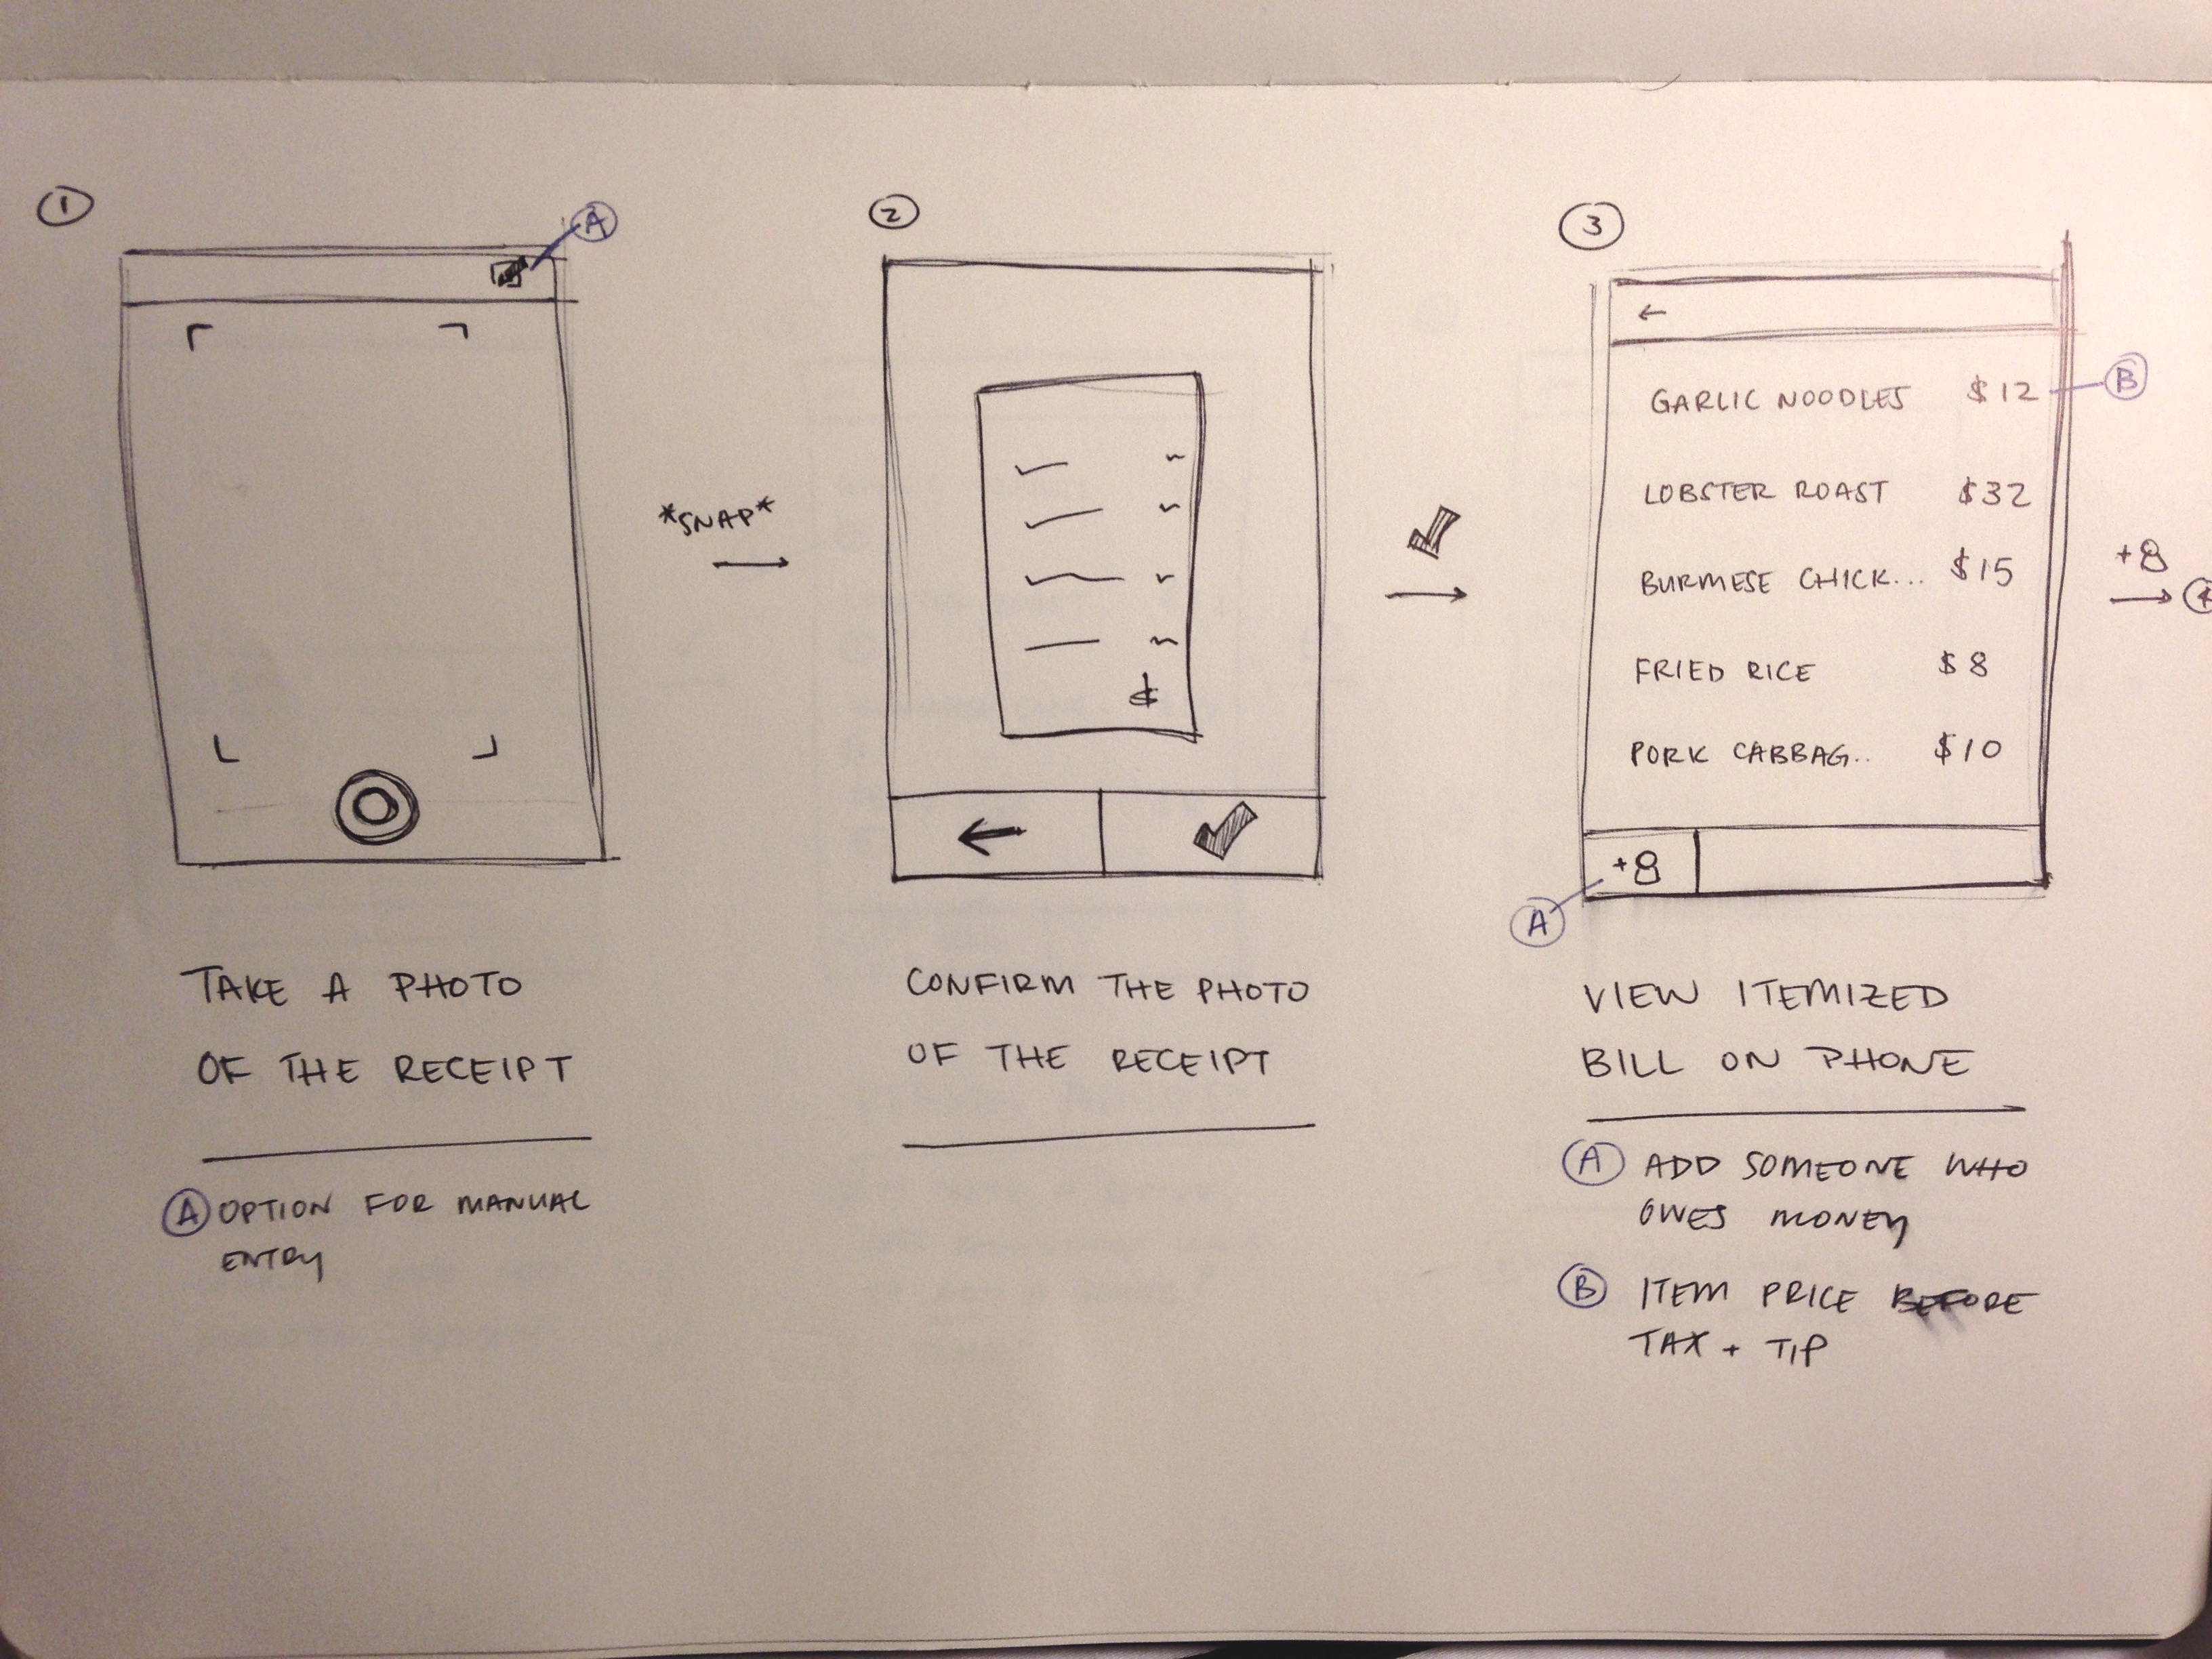 1
A
TAKE A PHOTO
OF THE RECEIPT
A OPTION FOR MANUAL
ENTRY
*SNAP*
2
$
CONFIRM THE PHOTO
OF THE RECEIPT
3
GARLIC NOODLES $12
B
LOBSTER ROAST $32
BURMESE CHICK... $15
FRIED RICE $8
PORK CABBAG.. $10
+8
A
+8
VIEW ITEMIZED
BILL ON PHONE
A ADD SOMEONE WHO
OWES MONEY
B ITEM PRICE BEFORE
TAX + TIP